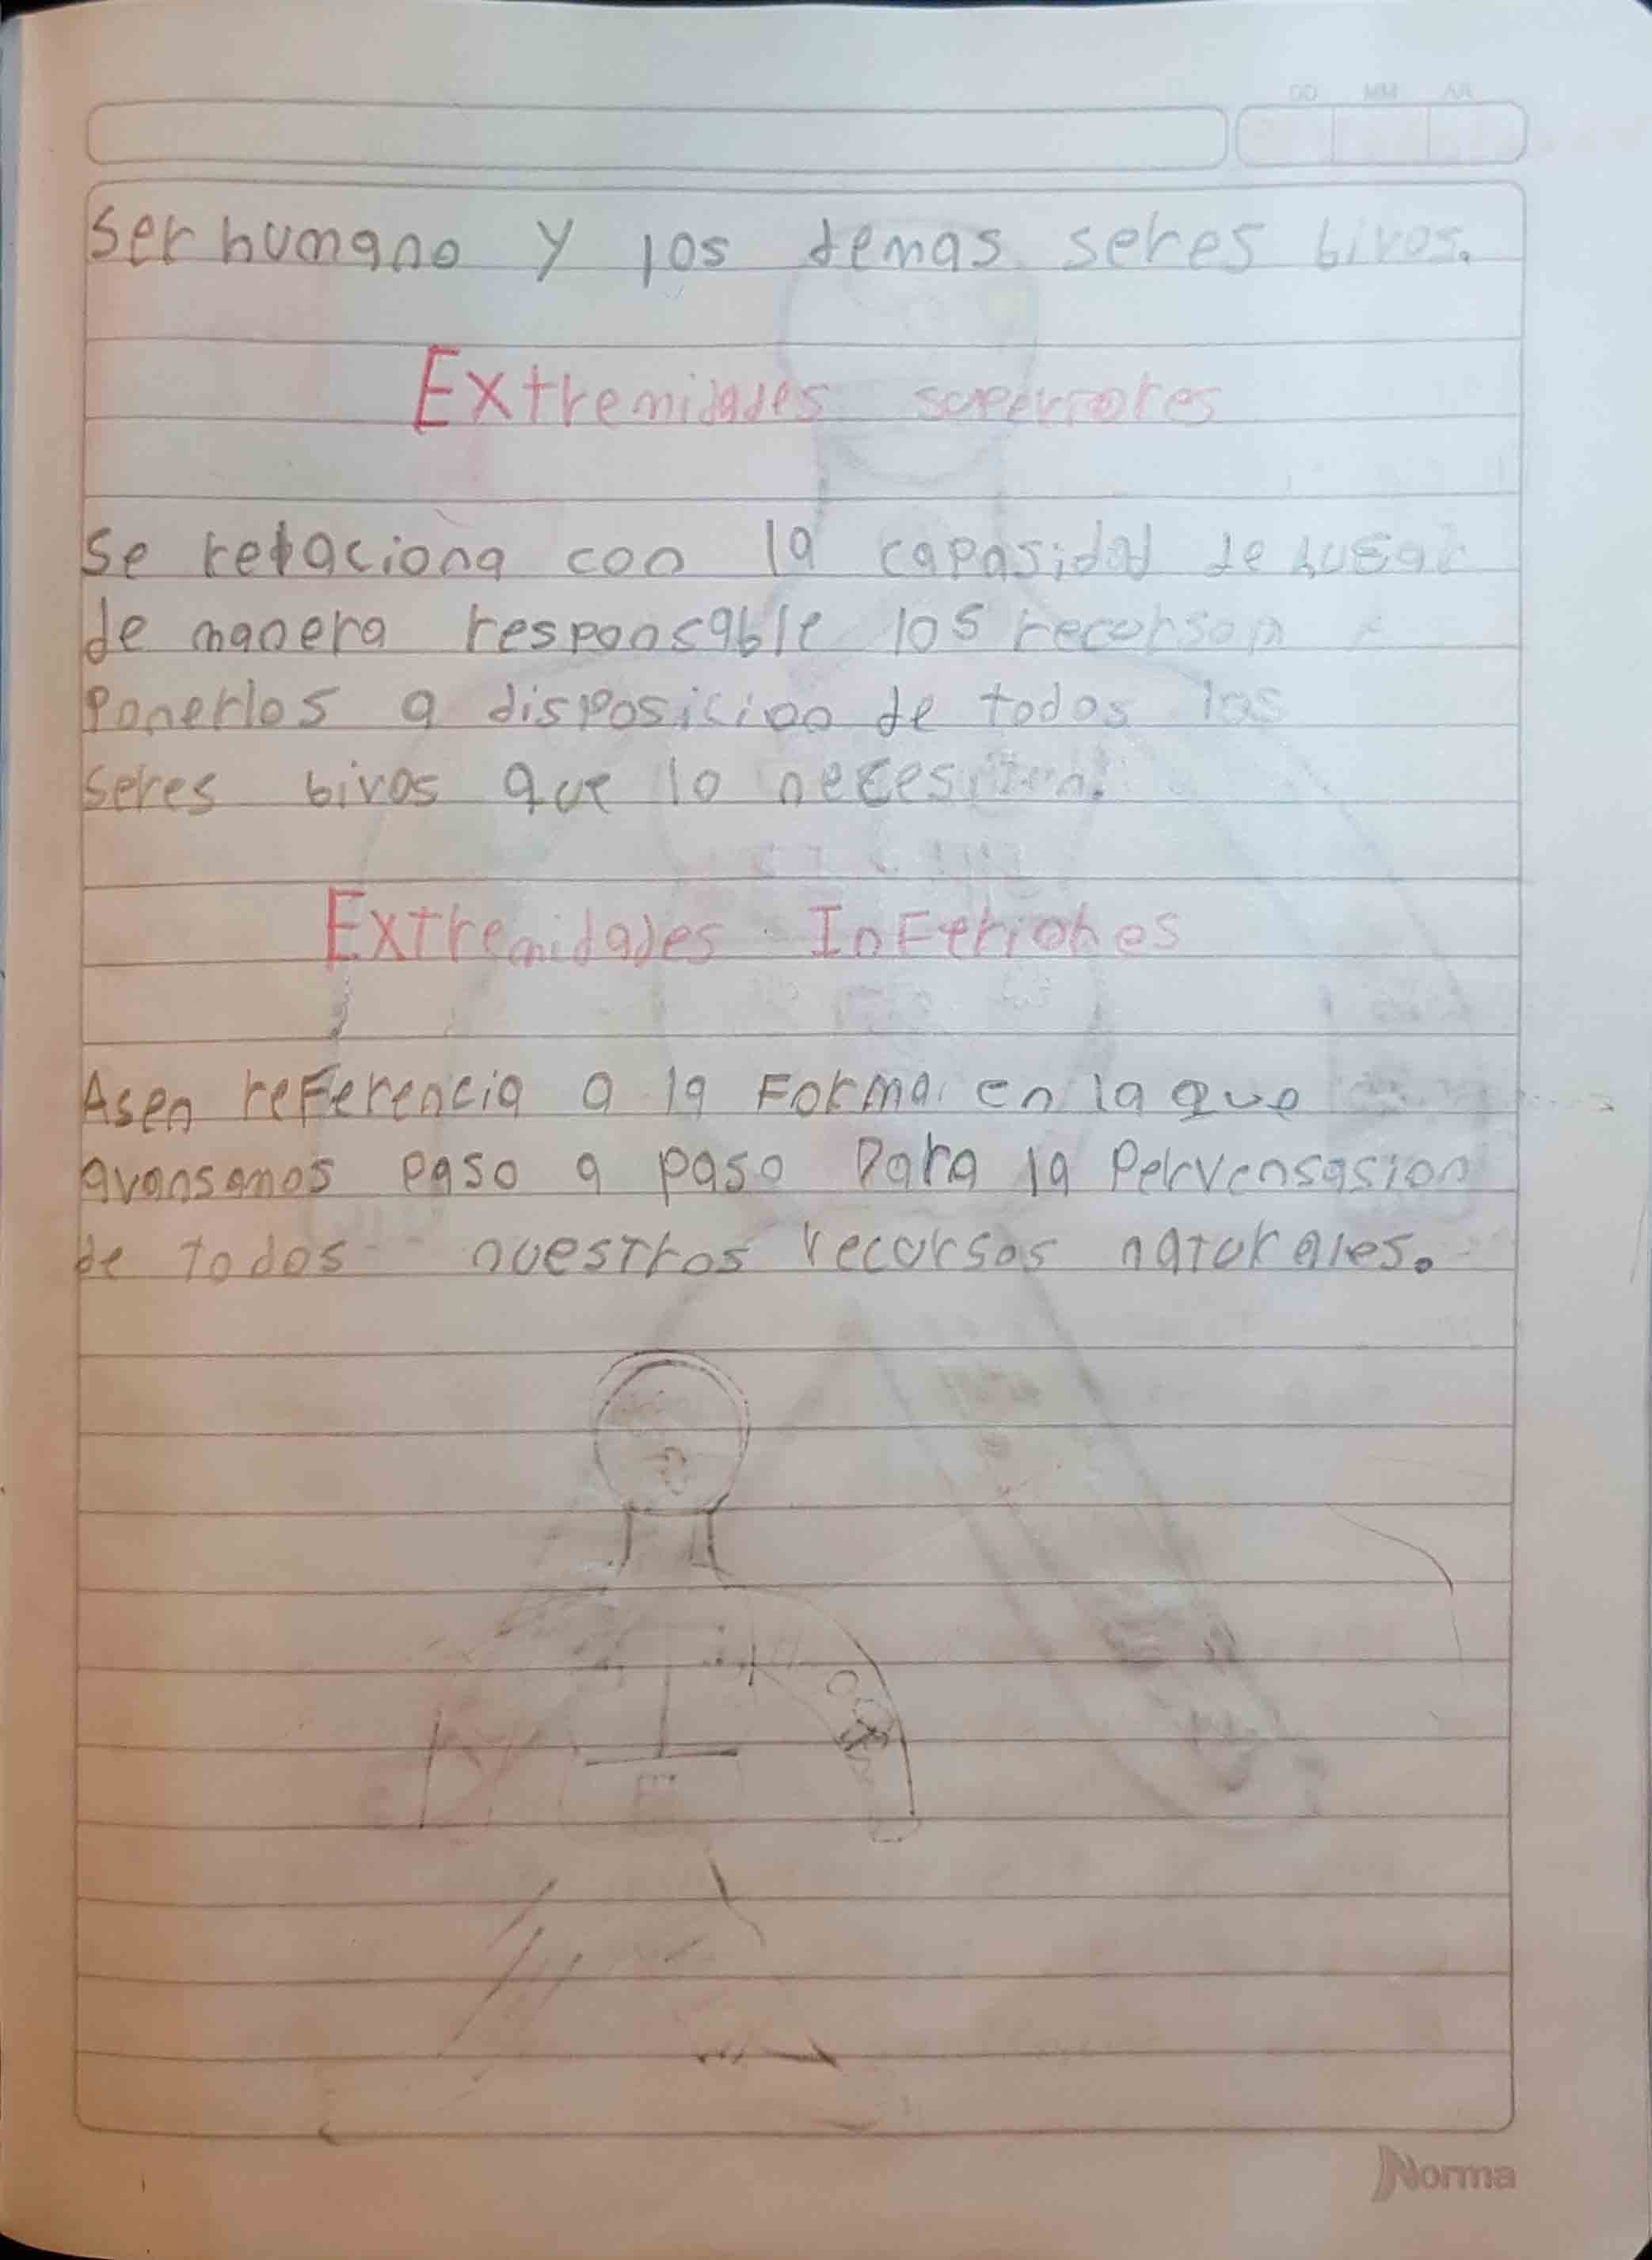 DD MM AA
ser humano y los demas seres bivos.
Extremidades superiores
Se relaciona con la capasidad de
de manera responsable los
Ponerlos a disposicion de todos los
seres bivos que lo necesitan.
Extremidades Inferiores
Asen referencia a la Forma en la que
avansamos paso a paso Para la Pervensasion
de todos nuestros recursos naturales.
Norma